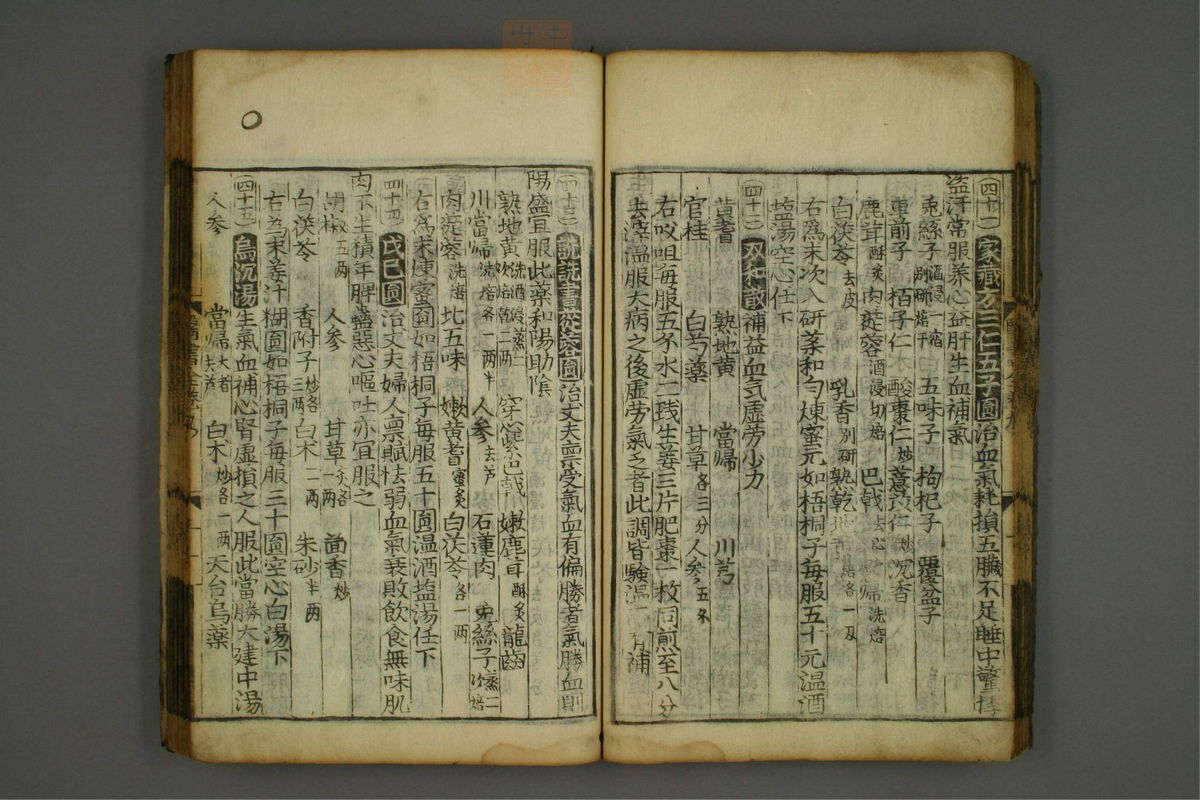 (四十一)家藏方三仁五子圓治血氣耗損五臟不足睡中驚悸
盗汗常服养心益肝生血補氣
兎絲子酒浸一宿 五味子 枸杞子 覆盆子
車前子 栢子仁 酸棗仁炒薏苡仁炒沉香
鹿茸酥炙肉蓯蓉酒浸切焙 巴戟去心 當归洗焙
白茯苓去皮 乳香别研熟乾地 焙各一两
右爲末次入研藥和匀煉蜜元如梧桐子每服五十元温酒
塩湯空心任下
(四十二)双和散補益血气虚劳少力
黄耆 熟地黄 當歸 川芎
官桂 白芍藥 甘草各三分人参五
右㕮咀每服五 水二戋生姜三片肥棗一枚同煎至八分
去滓温服大病之後虚劳氣乏者此調皆驗温 有補
(四十三)究原蓯蓉圓治丈夫禀受氣血有偏勝者氣勝血則
陽盛宜服此藥和陽助陰
熟地黄洗酒浸蒸二次焙乾二两 穿心紫巴戟 嫩鹿茸酥炙 龍齒
川當帰洗焙各一两半 人参去芦 石蓮肉 兎絲子
肉蓯蓉洗焙 北五味 嫩黄耆蜜炙白茯苓各一两
右為末煉蜜圓如梧桐子每服五十圓温酒塩湯任下
四十四戊已圓治丈夫婦人禀賦怯弱血氣衰敗飲食無味肌
肉不生積年脾蠱惡心嘔吐亦宜服之
胡椒五两 人参 甘草炙各一两 茴香炒
白茯苓 香附子炒各三两白术二两 朱砂半两
右爲末姜汁糊圓如梧桐子每服三十圓空心白湯下
(四十五)烏沉湯生氣血補心腎虚損之人服此當勝大建中湯
人参 當歸大者去芦 白术炒各一两 天台烏藥